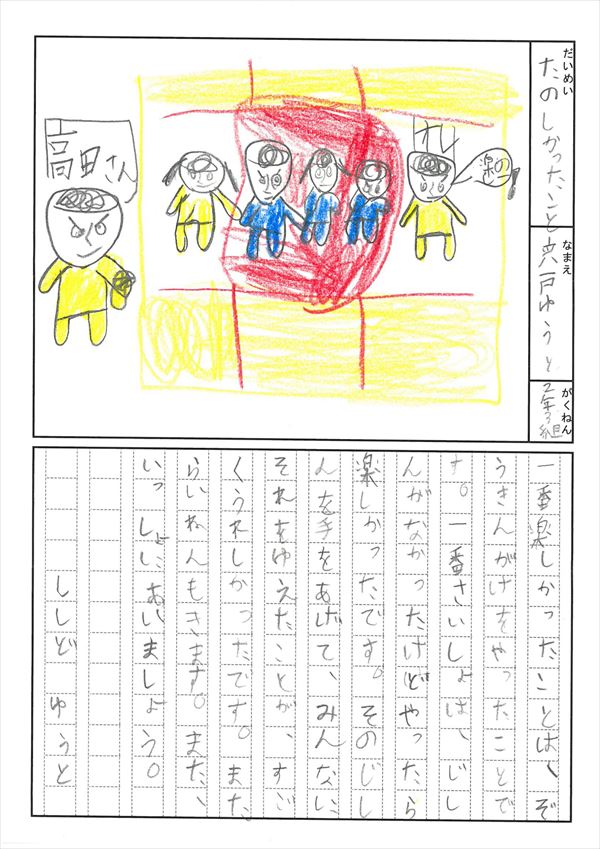 だいめい
たのしかったこと
なまえ
宍戸ゆうと
がくねん
2年3組
高田さん
オレ
楽の
一番楽しかったことは、ぞ
うきんがけをやったことで
す。一番さいしょは、じし
んがなかったけどやったら
楽しかったです。そのじし
んを手をあげて、みんないに
それをゆえたことが、すご
くうれしかったです。また
らいねんもきます。また、
いっしょに、あいましょう。
ししど ゆうと